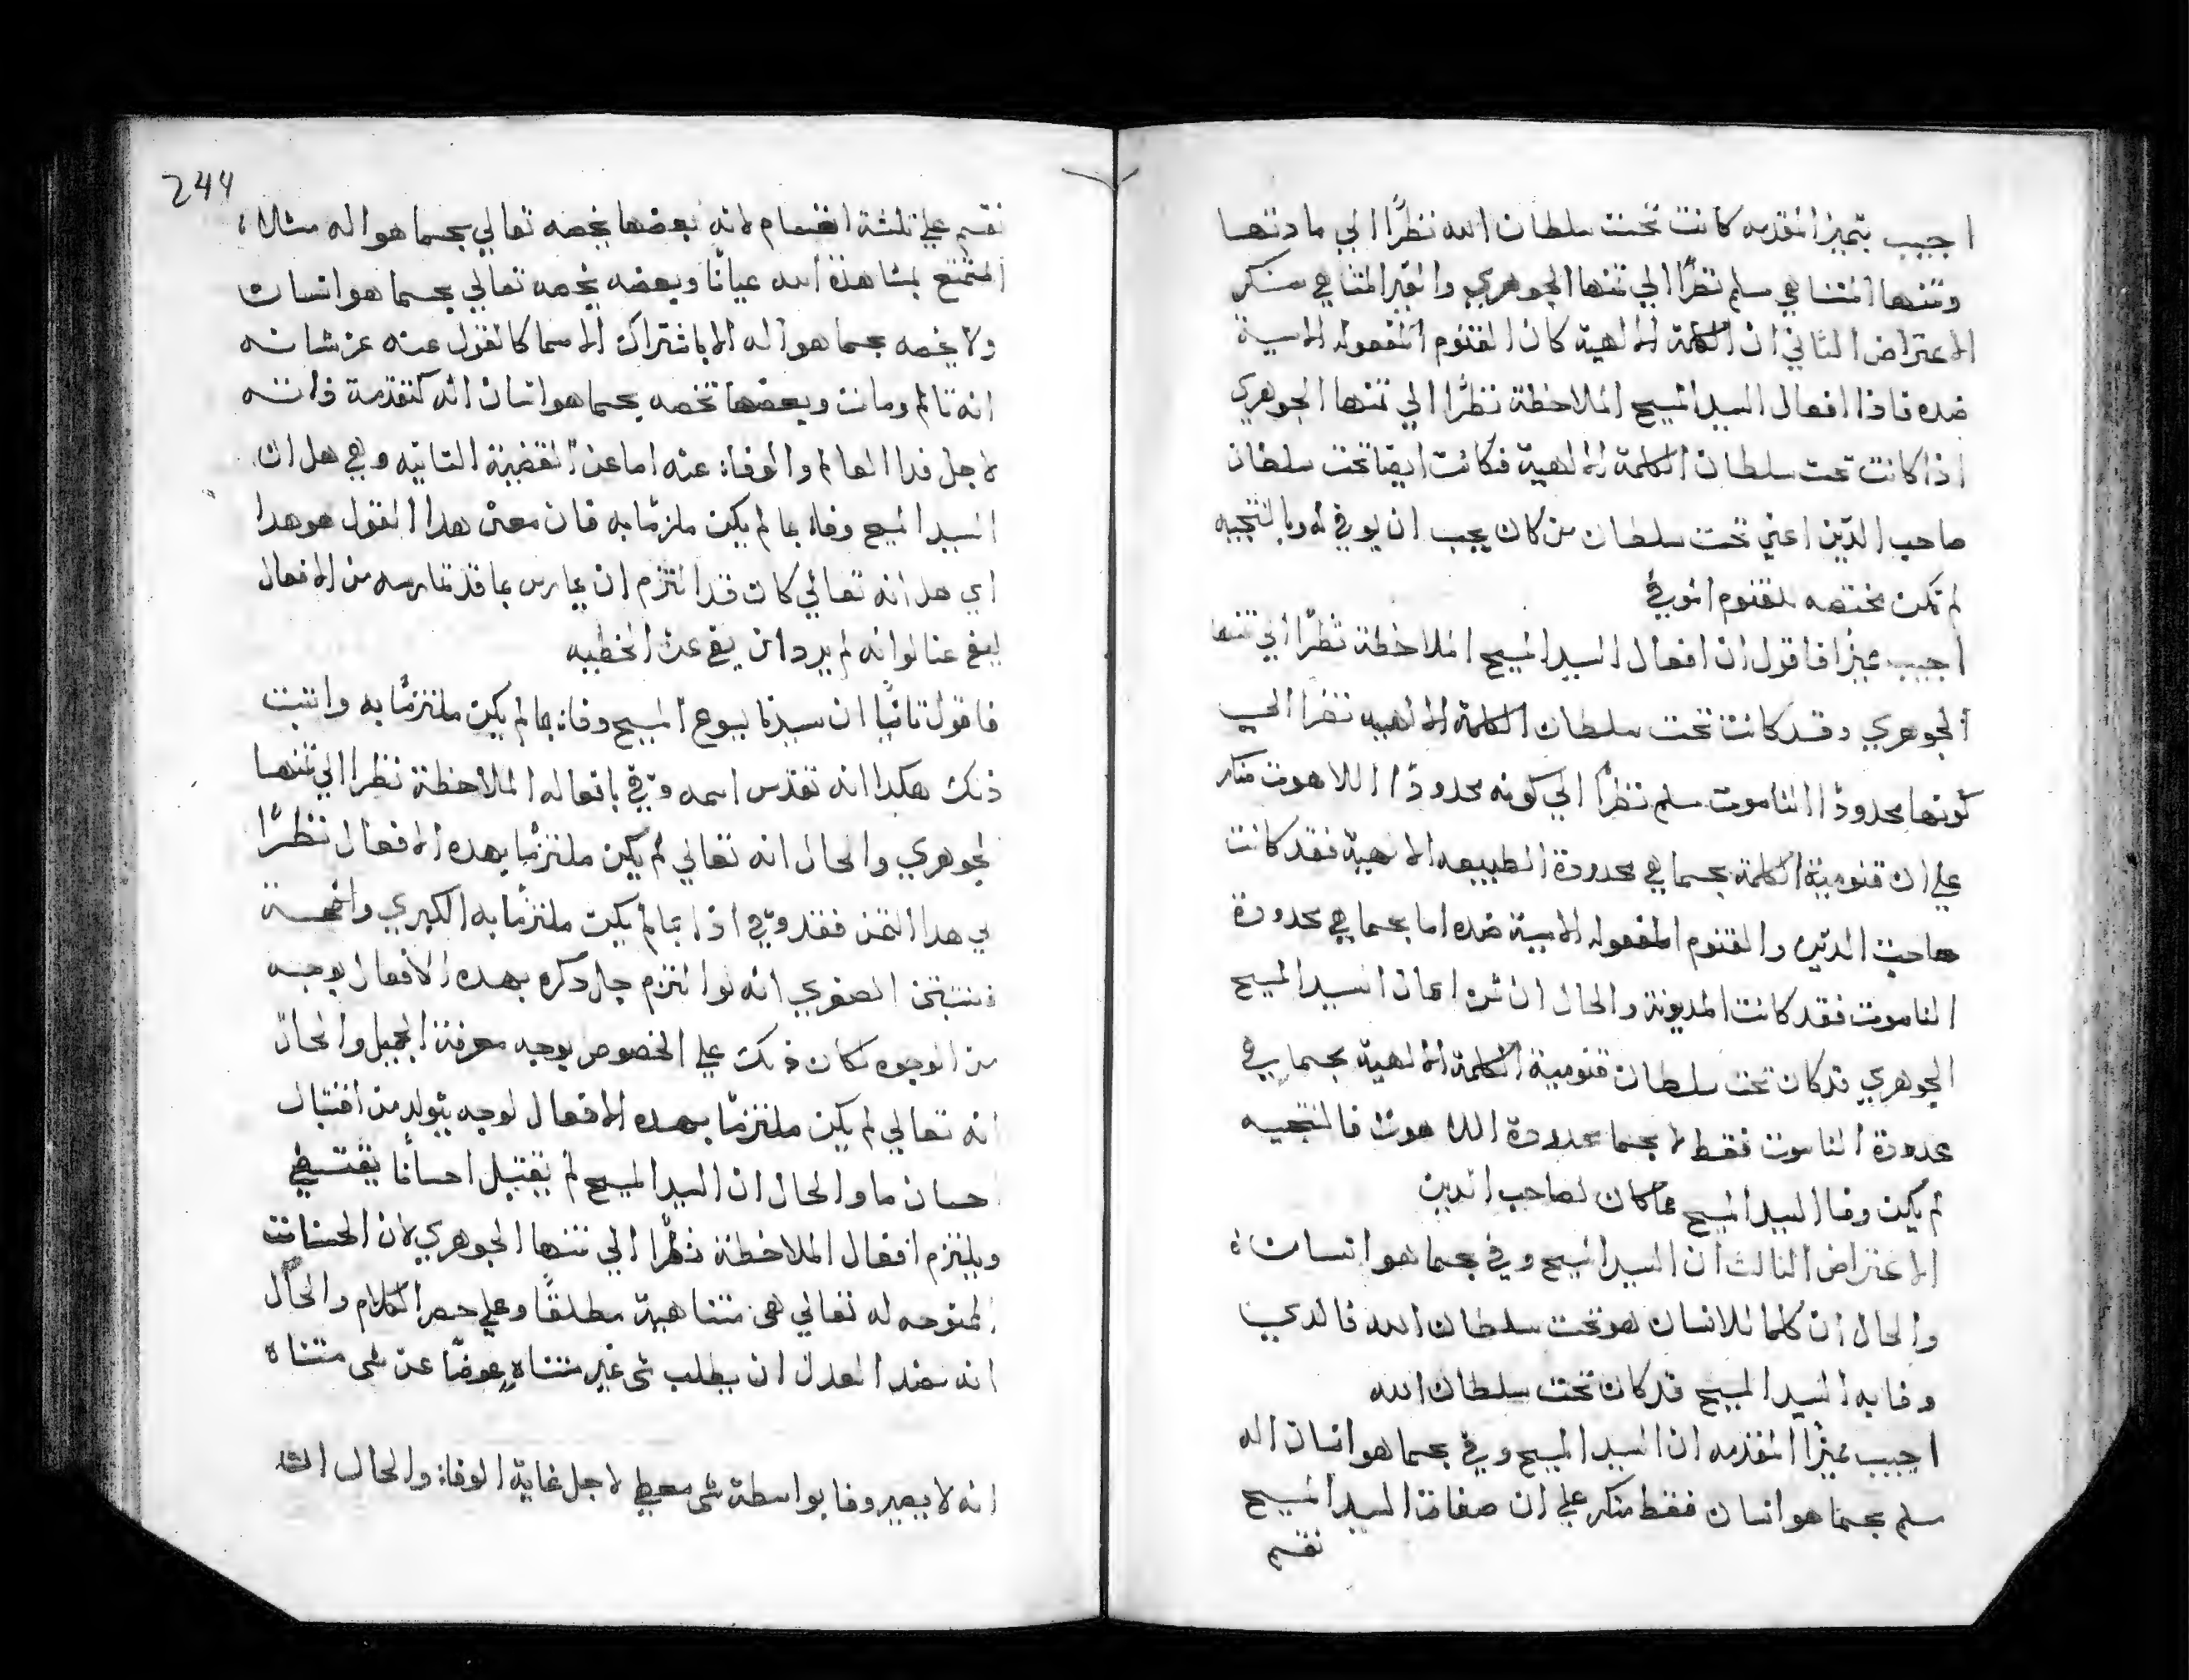 اجيب بتميز المقدمه كانت تحت سلطان الله نظرًا الي مادتها
وثمنها المتناهي مسلم نظرًا الي ثمنها الجوهري والغير المتناهي منكر
الاعتراض الثاني ان الكلمة الالهية كان القنوم المفعوله الاسية
ضده فاذا افعال السيد المسيح الملاحظة نظرًا الي ثمنها الجوهري
اذا كانت تحت سلطان الكلمة الالهية فكانت ايضا تحت سلطان
صاحب الدين اعني تحت سلطان من كان يجب ان يوفي له وبالنتيجه
لم تكن مختصه بالقنوم الموفي
اجيب مميزا فاقول ان افعال السيد المسيح الملاحظة نظرًا الي ثمنها
الجوهري وقد كانت تحت سلطان الكلمة الالهيه نظرا الي
كونها محدودًا الناسوت مسلم نظرًا الي كونه محدودًا اللاهوت منكر
علي ان قنومية الكلمة بحسما هي محدودة الطبيعه الالهية فقد كانت
صاحبت الدين والقنوم المفعوله الاسية ضده اما بحسما هي محدودة
الناسوت فقد كانت المديونة والحال ان ثمن اعمال السيد المسيح
الجوهري قد كان تحت سلطان قنومية الكلمة الالهية بحسما هي
محدودة الناسوت فقط لا بحسما محدودة اللاهوت فالنتجيه
لم يكن وفا السيد المسيح مما كان لصاحب الدين
الاعتراض الثالث ان السيد المسيح وفي بحسما هو انسان
والحال ان كلما للانسان هو تحت سلطان الله فالدي
وفا به السيد المسيح قد كان تحت سلطان الله
اجيب مميزًا المقدمه ان السيد المسيح وفي بحسما هو انسان اله
مسلم بحسما هو انسان فقط منكر علي ان صفات السيد المسيح
تقسم
244
تقسم علي ثلثة اقسام لانه بعضها يخصه تعالي بحسما هو اله مثلا
التمتع بمشاهدة الله عيانًا وبعضه يخصه تعالي بحسما هو انسان
ولا يخصه بحسما هو اله الا باشتراك الاسما كالقول عنه عز شانه
انه تالم ومات وبعضها تخصه بحسما هو انسان اله كتقدمة ذاته
لاجل فدا العالم والوفاء عنه اما عن القضية الثانيه وهي هل ان
السيد المسيح وفاء بما لم يكن ملزمًا به فان معنى هدا القول هو هدا
اي هل انه تعالي كان قد التزم ان يمارس بما قد تمارسه من الافعال
ليفي عنا لو انه لم يرد ان يفي عن الخطيه
فاقول ثانيًا ان سيدنا يسوع المسيح وفاء بما لم يكن ملتزمًا به واثبت
ذلك هكدا انه تقدس اسمه وفي بافعاله الملاحظة نظرا الي ثمنها
الجوهري والحال انه تعالي لم يكن ملتزمًا بهده الافعال نظرًا
الي هدا الثمن فقد وفي اذا بما لم يكن ملتزمًا به الكبري واضحة
فتثبتن الصغري انه لو التزم جل دكره بهده الافعال بوجه
من الوجوه لكان ذلك علي الخصوص بوجه معرفة الجميل والحال
انه تعالي لم يكن ملتزمًا بهده الافعال لوجه يتولد من اقتبال
احسان ما والحال ان السيد المسيح لم يقتبل احسانًا يقتضي
ويلتزم افعال الملاحظة نظرًا الي ثمنها الجوهري لان الحسنات
الممنوحه له تعالي هي متناهية مطلقًا وعلي حصر الكلام والحال
انه ضد العدل ان يطلب شي غير متناهٍ عوضًا عن شي متناه
انه لا يصير وفا بواسطة شي معطي لاجل غاية الوفاء والحال ان